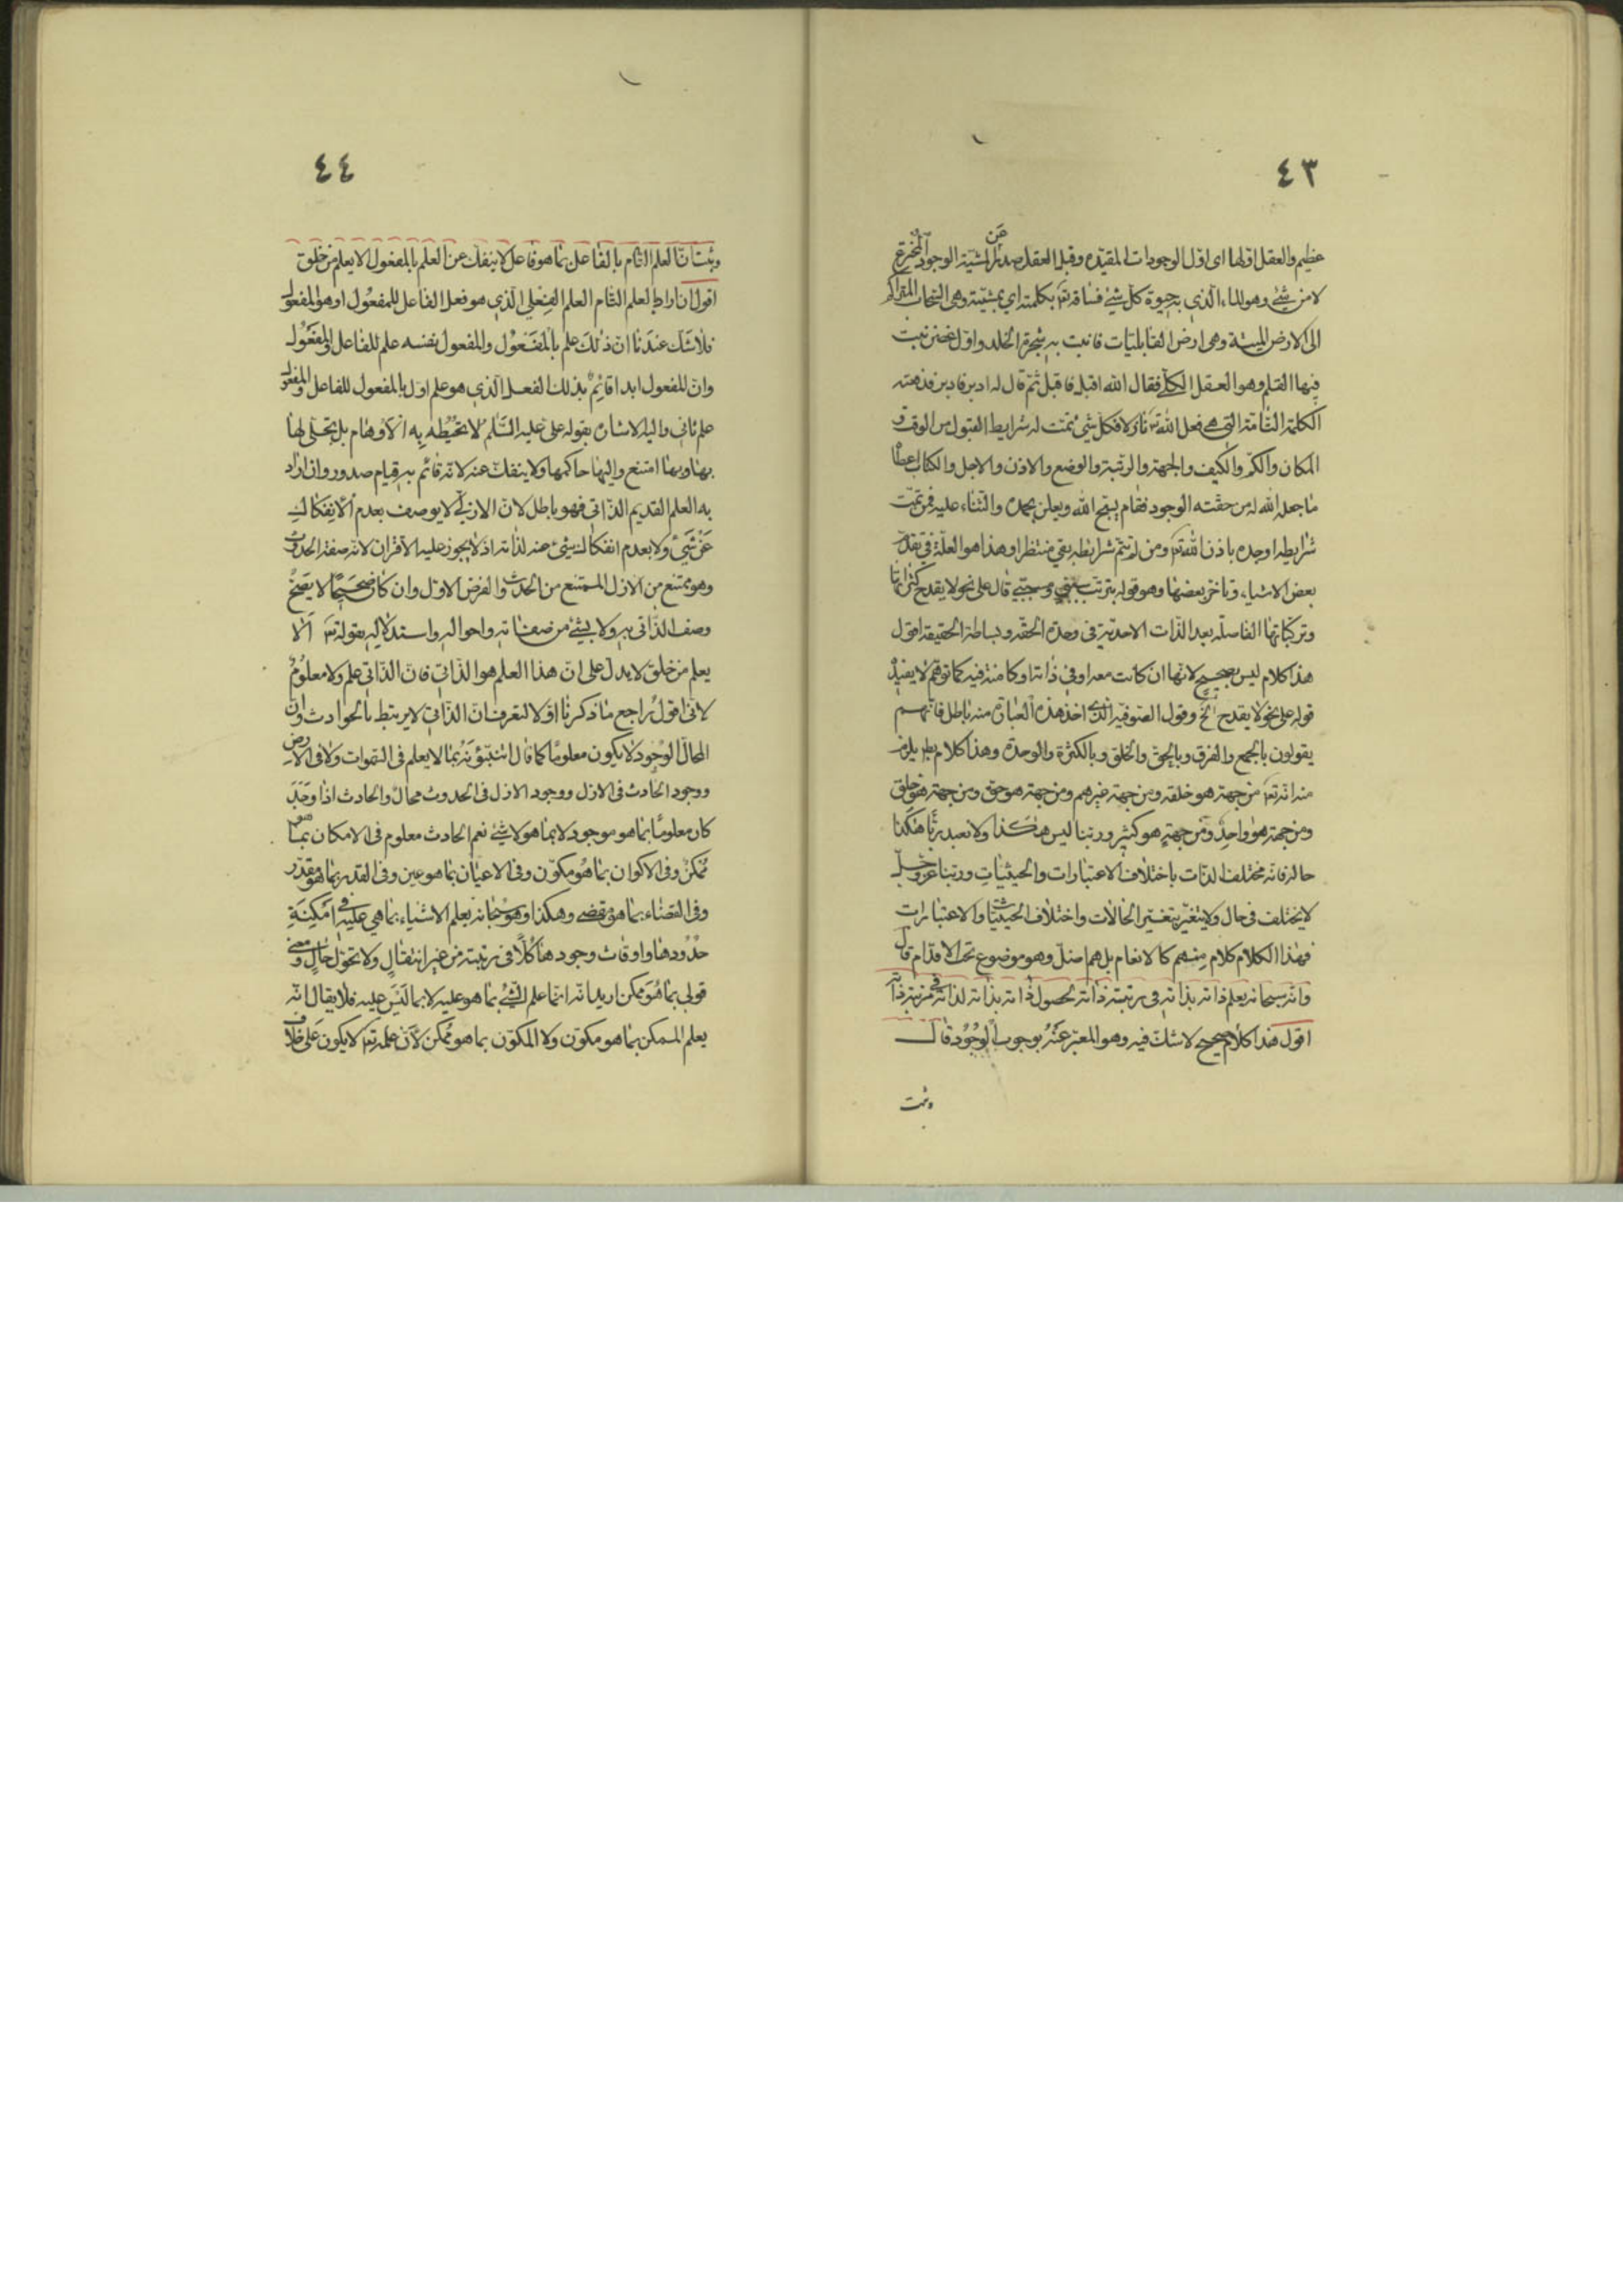 ٤٣
عظيم والعقل اولها اى اول الوجودات المقيده وقبل العقل صدر عن المشيّة الوجود المخترع
لا من شئ وهو الماء الّذي به حيوة كلّ شئ فساقه تعۤ بكلمته اي بمشيّته وهى السّحاب المتراكم
الى الارض الميتة وهى ارض القابليّات فانبت به شجرة الخلد واوّل غصن نبت
فيها القلم وهو العقل الكلّى فقال الله اقبل فاقبل ثمّ قال له ادبر فادبر فدفعته
الكلمة التّامة الّتى هى فعل الله تعۤ نازلا فكل شئ تمّت له شرايط القبول من الوقت و
المكان والكمّ والكيف والجهة والرتبة والوضع والاذن والاجل والكتاب اعطا
ما جعل الله له من حقّته الوجود فقام يسبّح الله ويعلن بحمده والثناء عليه فمن تمّت
شرايطه اوجده باذن الله تعۤ ومن لم تتمّ شرايطه بقى منتظرا وهذا هو العلّة في تقدّم
بعض الاشياء وتاخّر بعضها وهو قوله بترتيب سببي ومسببّي قال على نحو لا يقدح كثراتها
وتركّباتها الفاصلة بعد الذّات الاحديّة فى وحدته الحقّه وبساطته الحقيقة اقول
هذا كلام ليس بصحيح لانّها ان كانت معه او في ذاته او كامنة فيه كما توهّم لا يفيد
قوله على نحو لا يقدح الخ وقول الصّوفيّة الّذى اخذ هذه العبارة منه باطل فانّهم
يقولون بالجمع والفرق وبالحقّ والخلق وبالكثرة والوحدة وهذا كلام يلزم
منه انّه تعۤ من جهة هو خلقه ومن جهة غيرهم ومن جهة هو حق ومن جهة هو خلق
ومن جهة هو واحد ومن جهة هو كثير وربّنا ليس هكذا ولا نعبد ربّا هكذا
حاله فانّه مختلف الذّات باختلاف الاعتبارات والحيثيّات وربّنا عزّ وجلّ
لا يختلف في حال ولا يتغيّر بتغيّر الحالات واختلاف الحيثيّات والاعتبارات
فهذا الكلام كلام من هم كالانعام بل هم اضلّ وهو موضوع تحت الاقدام قال
وانّه سبحانه يعلم ذاته بذاته في رتبة ذاته لحصول ذاته بذاته لذاته في مرتبة ذاته
اقول هذا كلام صحيح لا شكّ فيه وهو المعبّر عنه بوجوب الوجود قال
وثبت
٤٤
وثبت انّ العلم التّام بالفاعل بما هو فاعل لا ينفكّ عن العلم بالمفعول الا يعلم من خلق
اقول ان اراد بالعلم التّام العلم الفعلي الّذي هو فعل الفاعل للمفعول او هو المفعول
فلا شكّ عندنا انّ ذلك علم بالمفعول والمفعول نفسه علم للفاعل بالمفعول
وانّ المفعول ابدا قائم بذلك الفعل الّذي هو علم اوّل بالمفعول للفاعل والمفعول
علم ثاني واليه الاشارة بقوله علىّ عليه السّلم لا تحيط به الاوهام بل تجلّى لها
بها وبها امتنع واليها حاكمها ولا ينفكّ عنه لانّه قائم به قيام صدور وان اراد
به العلم القديم الذّاتى فهو باطل لانّ الازليّ لا يوصف بعدم الانفكاك
عن شئ ولا بعدم انفكاك شئ عنه لذاته اذ لا يجوز عليه الاقتران لانّه صفة الحدوث
وهو ممتنع من الازل الممتنع من الحدث والفرض الاوّل وان كان صحيحا لا يصحّ
وصف الذّاتى به ولا بشئ من صفاته واحواله واستدلاله بقوله تعۤ الا
يعلم من خلق لا يدل على انّ هذا العلم هو الذّاتي فانّ الذّاتي علم ولا معلوم
لانّى اقول راجع ما ذكرنا اوّلا لتعرف انّ الذّاتيّ لا يرتبط بالحوادث وانّ
المحال الوجود لا يكون معلوما كما قال اتنبّئونه بما لا يعلم فى السّموات ولا في الارض
ووجود الحادث في الازل ووجود الازل في الحدوث محال والحادث اذا وجد
كان معلوما بما هو موجود لا بما هو لا شئ نعم الحادث معلوم في الامكان بما هو
ممكن وفي الاكوان بما هو مكوّن وفى الاعيان بما هو عين وفى القدر بما هو مقدّر
وفي القضاء بما هو مقضى وهكذا وهو سبحانه يعلم الاشياء بما هي عليه في امكنة
حدودها واوقات وجودها كلّا في رتبته من غير انتقال ولا تحوّل حال ومعنى
قولى بما هو ممكن اريد انّه انّما علم الشّئ بما هو عليه لا بما ليس عليه فلا يقال انّه
يعلم الممكن بما هو مكوّن ولا المكوّن بما هو ممكن لانّ علمه تعۤ لا يكون على خلاف